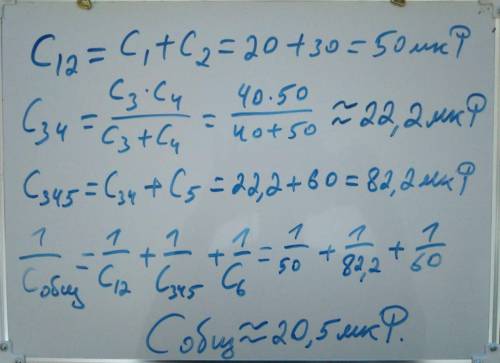 C₁₂ = C₁ + C₂ = 20 + 30 = 50 мкФ
C₃₄ = (C₃ · C₄)/(C₃ + C₄) = (40 · 50)/(40 + 50) ≈ 22,2 мкФ
C₃₄₅ = C₃₄ + C₅ = 22,2 + 60 = 82,2 мкФ
1/Cобщ = 1/C₁₂ + 1/C₃₄₅ + 1/C₆ = 1/50 + 1/82,2 + 1/60
Cобщ ≈ 20,5 мкФ.